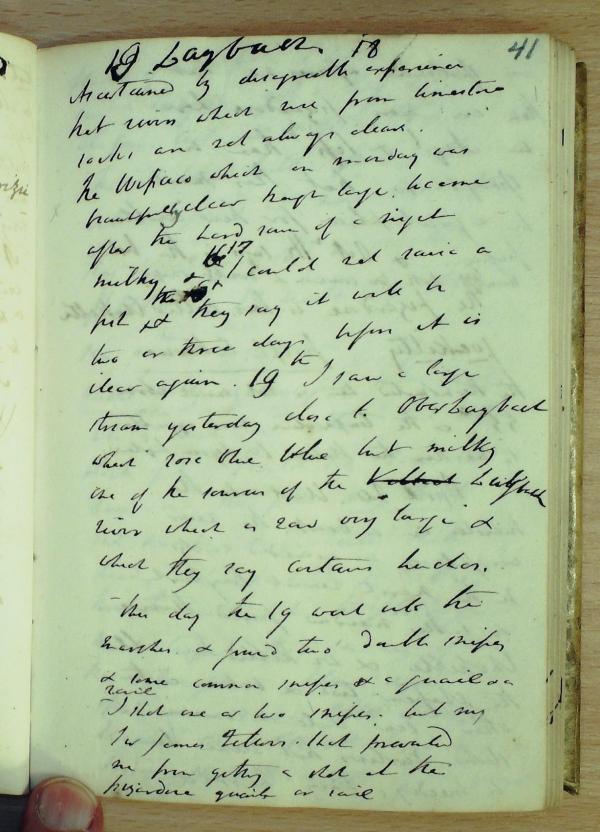 19 Laybach 18 41
Ascertained by disagreeable experience
that rivers which rise from limestone
rocks are not always clear.
The which on monday was
beautifully clear though large became
after the hard rain of a night
milky & the 17 I could not raise a
fish & they say it will be
two or three days before it is
clear again. 19th I saw a large
stream yesterday close to Oberlaybach
which rose blue blue but milky
one of the sources of the Laybach
river which is now very large &
which they say contains huchos.
This day the 19 went into the
marshes & found two double snipes
& some common snipes & a quail or a
rail
I shot one or two snipes. but my
that prevented
me from getting a shot at the
quails or rail